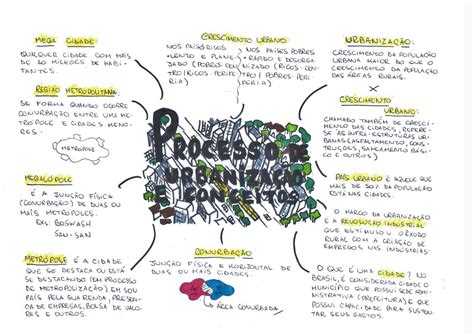 MEGA CIDADE:
QUALQUER CIDADE COM MAIS
DE 10 MILHÕES DE HABI-
TANTES.
REGIÃO METROPOLITANA
SE FORMA QUANDO OCORRE
CONURBAÇÃO ENTRE UMA ME-
TRÓPOLE E CIDADES MENO-
RES.
METRÓPOLE
MEGALÓPOLE
É A JUNÇÃO FÍSICA
(CONURBAÇÃO) DE DUAS OU
MAIS METRÓPOLES.
EX: BOSWASH
SAN-SAN
METRÓPOLE É A CIDADE
QUE SE DESTACA OU ESTÁ
SE DESTACANDO (EM PROCESSO
DE METROPOLIZAÇÃO) EM SEU
PAÍS PELA SUA RENDA, PRESEN-
ÇA DE EMPRESAS, BOLSA DE VALO-
RES E OUTROS.
CRESCIMENTO URBANO
NOS PAÍSES RICOS
LENTO E PLANE-
JADO (POBRES CEN-
TRO/RICOS-PERIFE-
RIA)
NOS PAÍSES POBRES
RÁPIDO E DESORGA-
NIZADO (RICOS-CEN-
TRO/POBRES-PERI-
FERIA)
PROCESSO DE
URBANIZAÇÃO
CONCEITOS
CONURBAÇÃO
JUNÇÃO FÍSICA E HORIZONTAL DE
DUAS OU MAIS CIDADES.
ÁREA CONURBADA
URBANIZAÇÃO:
CRESCIMENTO DA POPULAÇÃO
URBANA MAIOR DO QUE O
CRESCIMENTO DA POPULAÇÃO
DAS ÁREAS RURAIS.
CRESCIMENTO
URBANO:
CHAMADO TAMBÉM DE CRESCI-
MENTO DAS CIDADES, REFERE-
SE ÀS INFRA-ESTRUTURAS UR-
BANAS (ASFALTAMENTO, CONS-
TRUÇÕES, SANEAMENTO BÁSI-
CO E OUTROS)
PAÍS URBANO É AQUELE QUE
MAIS DE 50% DA POPULAÇÃO
ESTÁ NAS CIDADES.
O MARCO DA URBANIZAÇÃO
É A REVOLUÇÃO INDUSTRIAL
QUE ESTIMULOU O ÊXODO
RURAL COM A CRIAÇÃO DE
EMPREGOS NAS INDÚSTRIAS.
O QUE É UMA CIDADE? NO
BRASIL, É CONSIDERADA CIDADE O
MUNICÍPIO QUE POSSUI SEDE AD-
MINISTRATIVA (PREFEITURA) E QUE
POSSUI CAPACIDADE PARA SUSTEN-
TAR SEUS GASTOS.